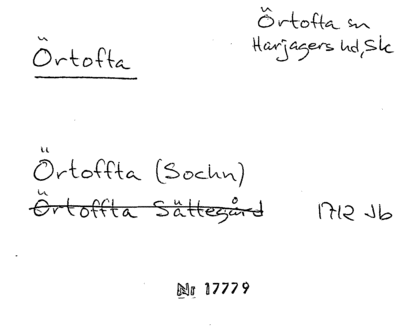 Örtofta sn
Harjagers hd, Sk
Örtofta
Örtoffta (Sochn)
Örtoffta Sättegård 1712 Jb
Nr 17779